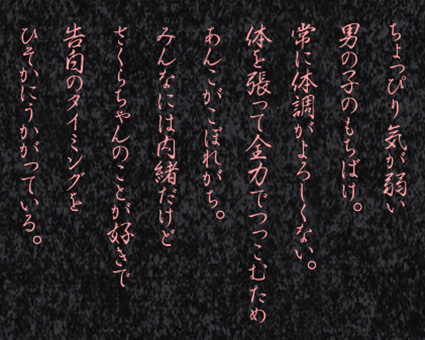 ちょっぴり気が弱い
男の子のもちばけ。
常に体調がよろしくない。
体を張って全力でつっこむため
あんこがこぼれがち。
みんなには内緒だけど
さくらちゃんのことが好きで
告白のタイミングを
ひそかにうかがっている。